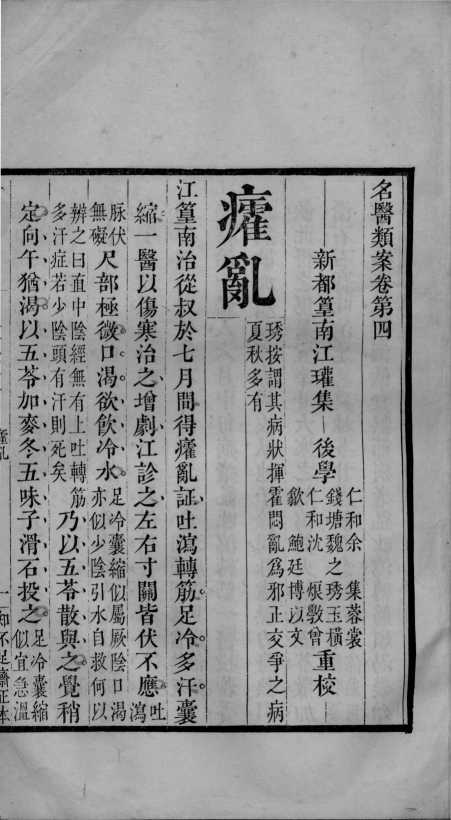 名醫類案卷第四
新都篁南江瓘集 後學
仁和余 集蓉裳
錢塘魏之琇玉橫
仁和沈 烺斅曾
歙 鮑廷博以文
重校
癨亂
琇按謂其病狀揮霍悶亂爲邪正交爭之病
夏秋多有
江篁南治從叔於七月間得癨亂証吐瀉轉筋足冷多汗囊
縮一醫以傷寒治之增劇江診之左右寸關皆伏不應
吐
瀉
脉伏
無礙
尺部極微口渴欲飲冷水
足冷囊縮似屬厥陰口渴
亦似少陰引水自救何以
辨之曰直中陰經無有上吐轉筋
多汗症若少陰頭有汗則死矣
乃以五苓散與之覺稍
定向午猶渴以五苓加麥冬五味子滑石投之
足冷囊縮
似宜急溫